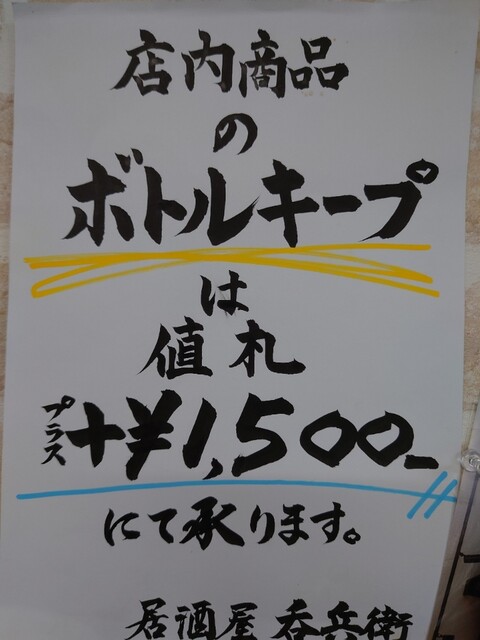 店内商品
の
ボトルキープ
は
値札
プラス+¥1,500-
にて承ります。
居酒屋 呑兵衛